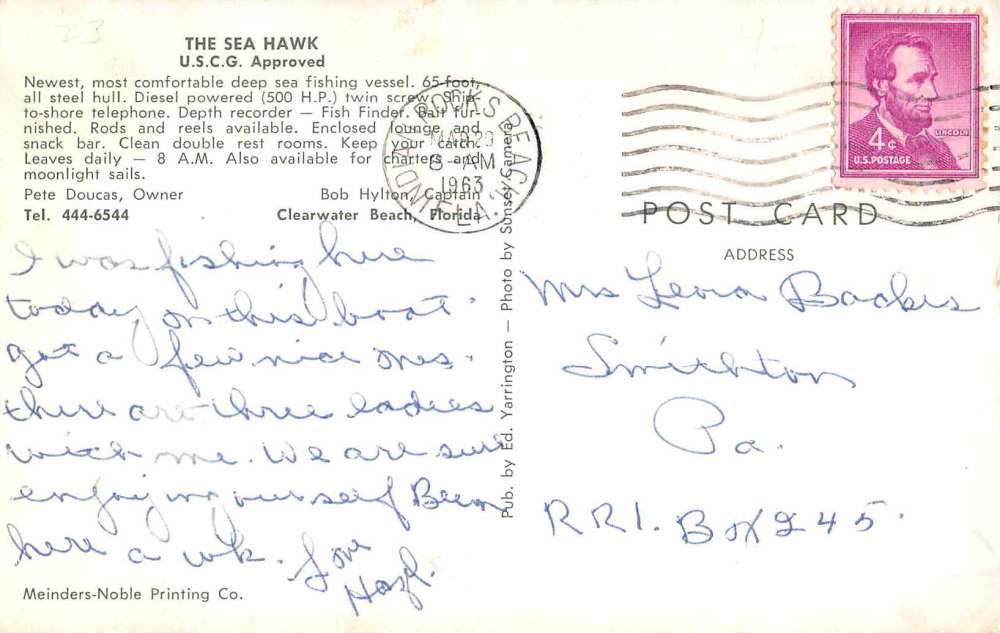 23
THE SEA HAWK
U.S.C.G. Approved
Newest, most comfortable deep sea fishing vessel. 65-foot,
all steel hull. Diesel powered (500 H.P.) twin screw. Ship-
to-shore telephone. Depth recorder — Fish Finder. Bait fur-
nished. Rods and reels available. Enclosed lounge and
snack bar. Clean double rest rooms. Keep your catch.
Leaves daily — 8 A.M. Also available for charters and
moonlight sails.
Pete Doucas, Owner Bob Hylton, Captain
Tel. 444-6544 Clearwater Beach, Florida
I was fishing here
today on this boat
got a few nice ones.
there are three ladies
with me. We are sure
enjoying ourself Been
here a wk. Love
Hazl.
Meinders-Noble Printing Co.
Pub. by Ed. Yarrington — Photo by Sunset Camera
INDIAN ROCKS BEACH, FLA.
MAR 29
AM
1963
4¢
LINCOLN
U.S. POSTAGE
POST CARD
ADDRESS
Mrs Leora Backus
Smithton
Pa.
R R 1. Box 245.